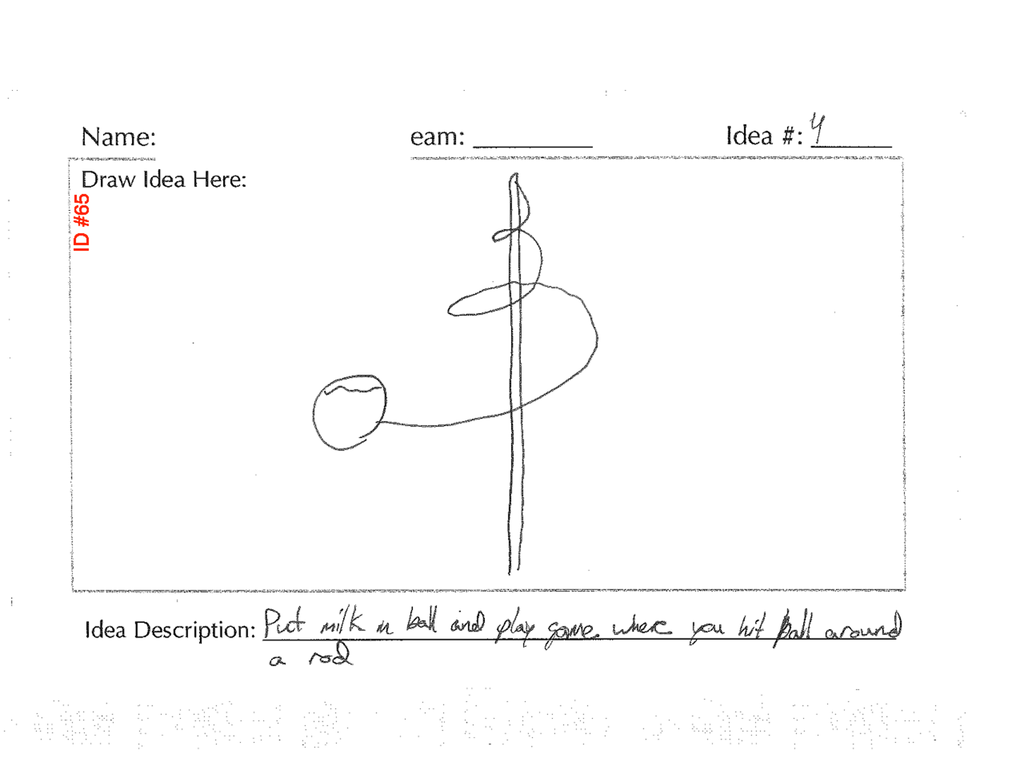 Name:
eam: __________ Idea #: 4
Draw Idea Here:
ID #65
Idea Description: Put milk in ball and play game where you hit ball around
a rod